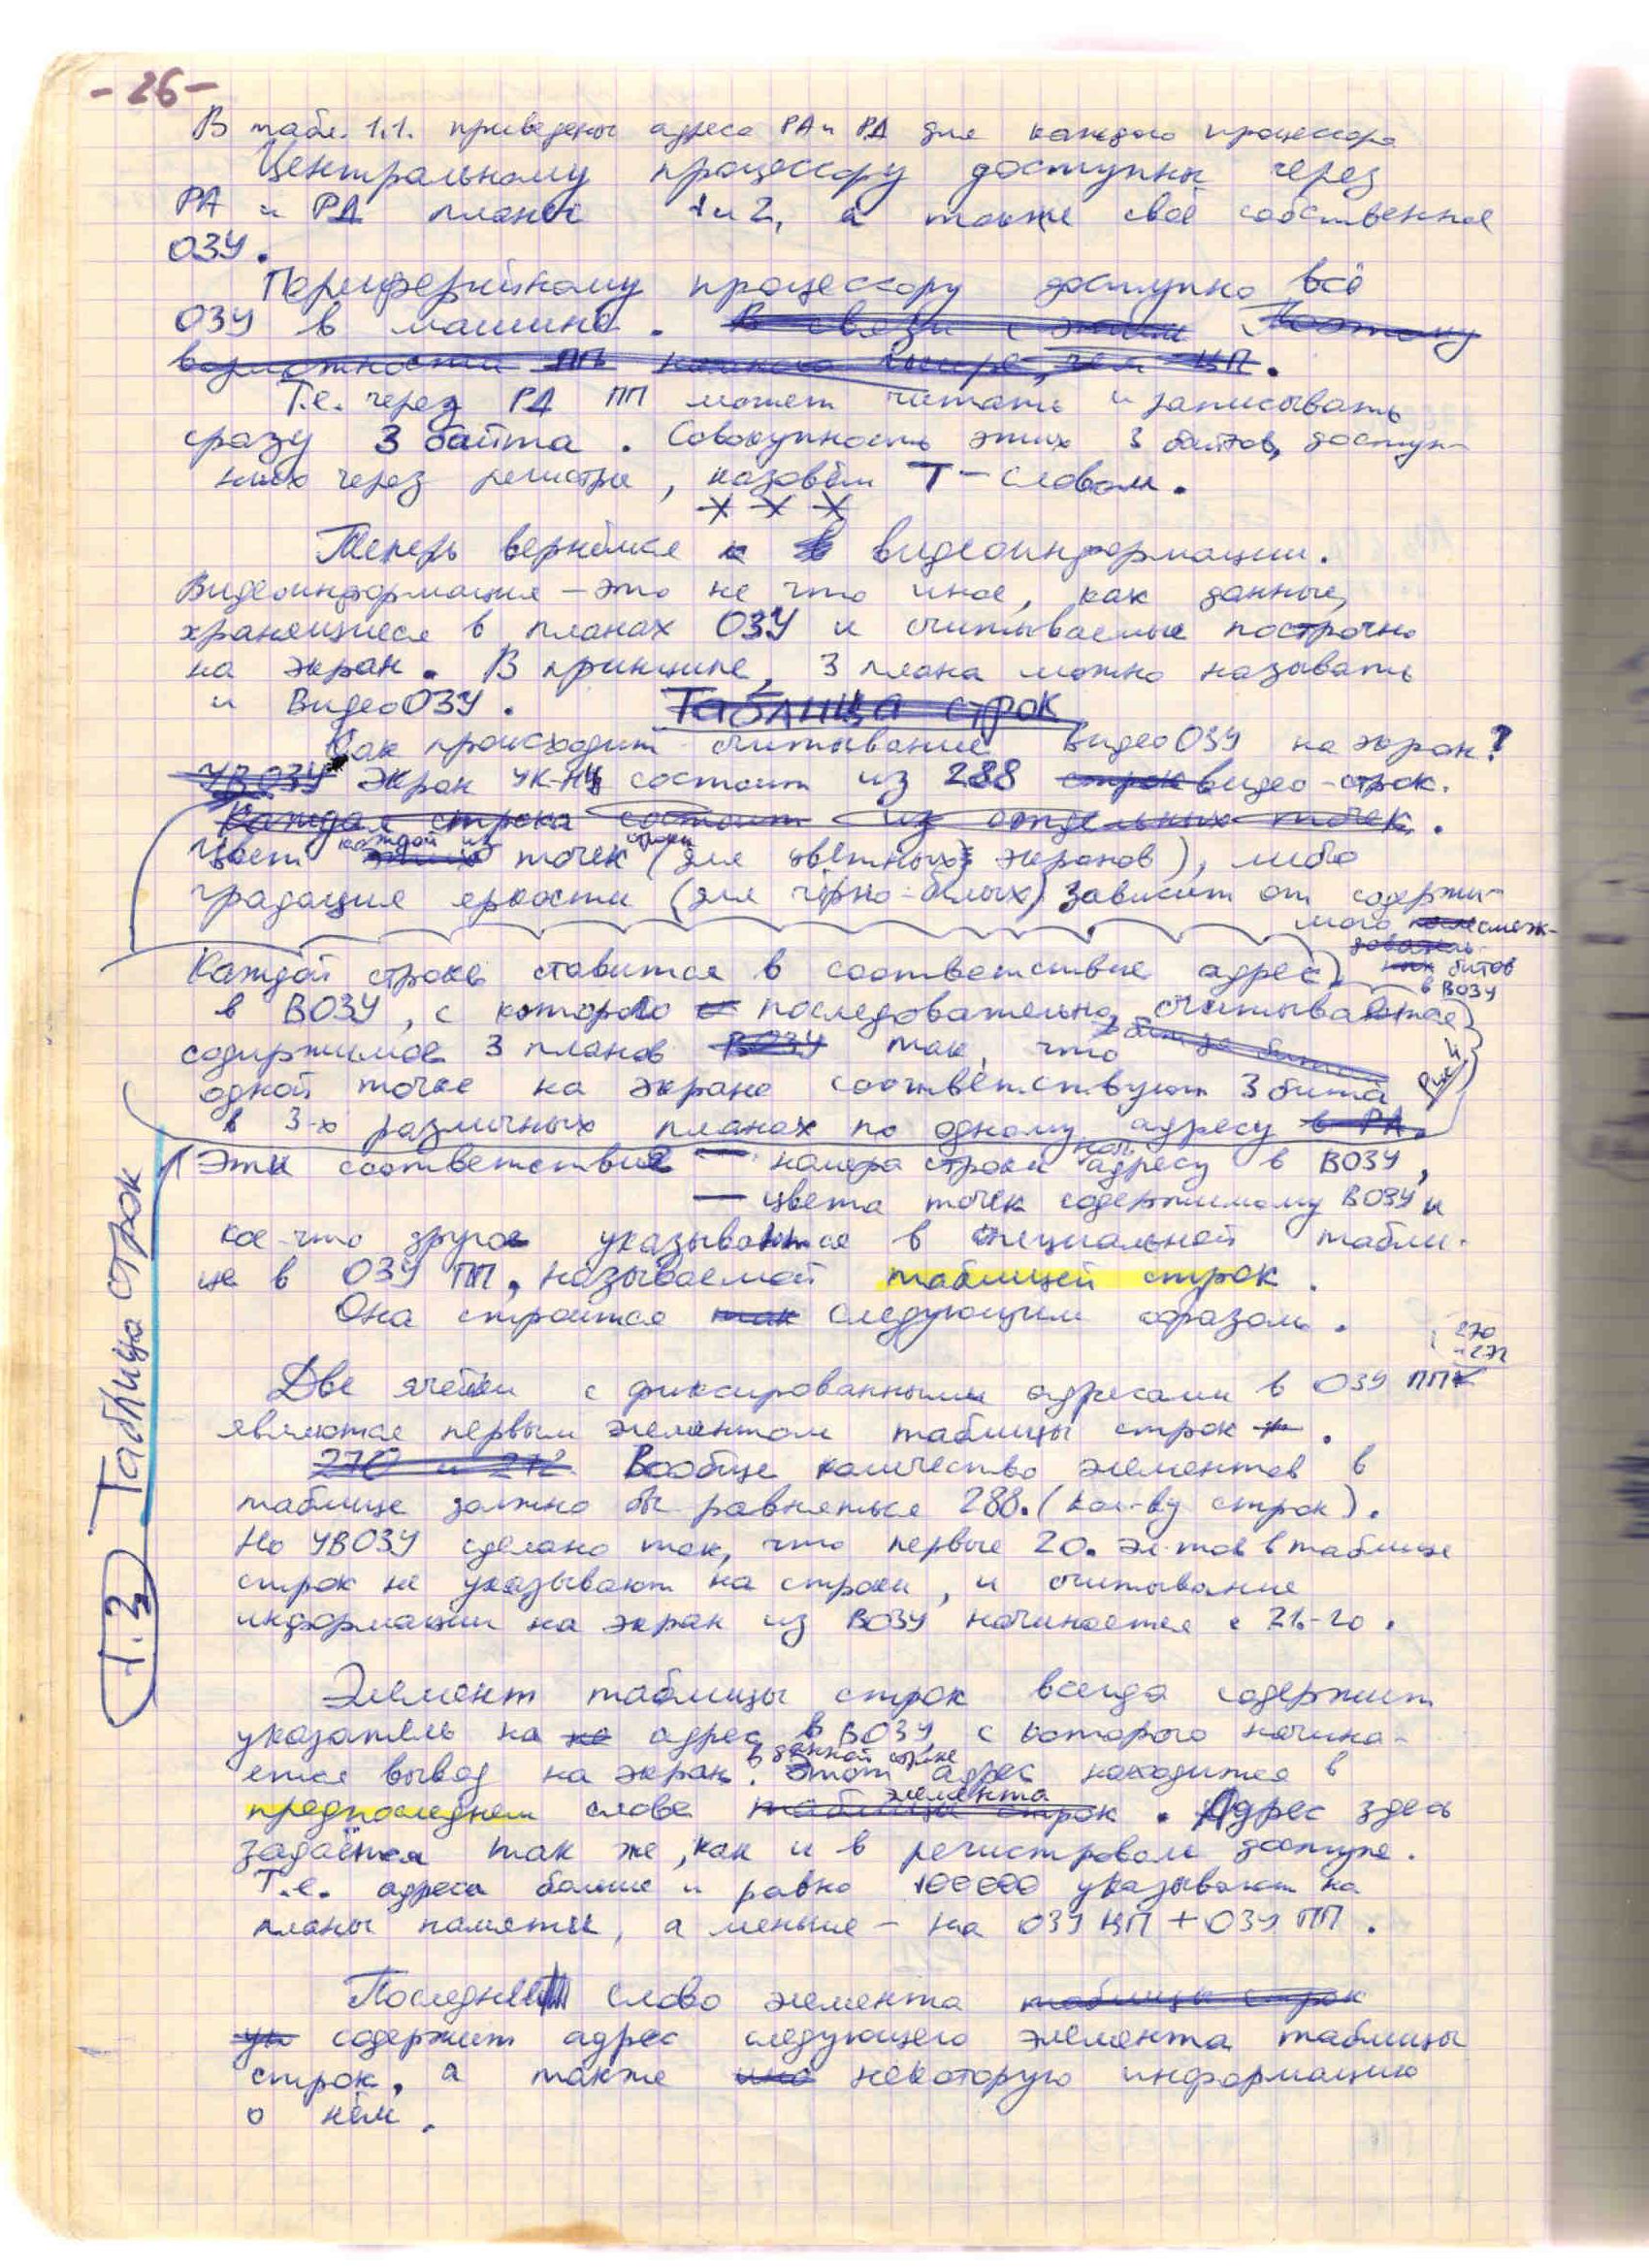 -26-
В табл. 1.1. приведены адреса РА и РД для каждого процессора
Центральному процессору доступны через
РА и РД планы 1 и 2, а также своё собственное
ОЗУ.
Периферийному процессору доступно всё
ОЗУ в машине. В связи с этим Поэтому
возможности ПП намного шире, чем ЦП.
Т.е. через РД ПП может читать и записывать
сразу 3 байта. Совокупность этих 3 байтов, доступ-
ных через регистры, назовём Т-словом.
ХХХ
Теперь вернёмся к в видеоинформации.
Видеоинформация - это не что иное, как данные,
хранящиеся в планах ОЗУ и считываемые построчно
на экран. В принципе, 3 плана можно называть
и ВидеоОЗУ. Таблица строк
Как происходит считывание ВидеоОЗУ на экран?
УВОЗУ Экран УК-НЦ состоит из 288 строк видео-строк.
Каждая строка состоит из отдельных точек.
Цвет каждой из этих точек строки (для цветных экранов), либо
градация яркости (для чёрно-белых) зависит от содержи-
мого последователь-
ных смеж-
битов
в ВОЗУ
Каждой строке ставится в соответствие адрес
в ВОЗУ, с которого последовательно считывается
содержимое 3 планов ВОЗУ так, что
одной точке на экране соответствуют 3 бита
в 3-х различных планах по одному адресу в РА.
Рис. 4
Эти соответствия — номера строки нач. адресу в ВОЗУ,
— цвета точек содержимому ВОЗУ и
кое-что другое указываются в специальной табли-
це в ОЗУ ПП, называемой таблицей строк.
Она строится так следующим образом.
1.2 Таблица строк
270
и 272
Две ячейки с фиксированными адресами в ОЗУ ПП
являются первым элементом таблицы строк.
270 и 272 Вообще количество элементов в
таблице должно бы равняться 288. (кол-ву строк).
Но УВОЗУ сделано так, что первые 20. эл-тов в таблице
строк не указывают на строки, и считывание
информации на экран из ВОЗУ начинается с 21.-го.
Элемент таблицы строк всегда содержит
указатель на на адрес в ВОЗУ, с которого начина-
ется вывод на экран в данной строке. Этот адрес находится в
предпоследнем слове таблицы строк элемента. Адрес здесь
задаётся так же, как и в регистровом доступе.
Т.е. адреса больше и равно 100000 указывают на
планы памяти, а меньше - на ОЗУ ЦП + ОЗУ ПП.
Последнее слово элемента таблицы строк
ук содержит адрес следующего элемента таблицы
строк, а также некоторую информацию
о нём.